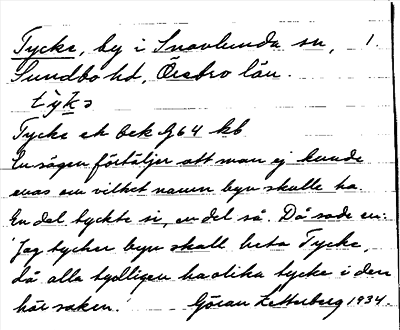 Tycke, by i Snavlunda sn, 1
Sundbo hd, Örebro län.
týkə
Tycke ek bek G64 kb
En sägen förtäljer att man ej kunde
enas om vilket namn byn skulle ha
En del tyckte si, en del så. Då sade en:
'Jag tycker byn skall heta Tycke,
då alla tydligen ha olika tycke i den
här saken.' Göran Zetterberg 1934.